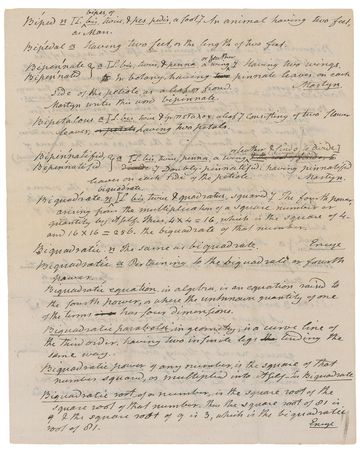 bipes, of
Biped n [L. bis, twice, & pes, pedis, a foot] An animal having two feet,
as Man.
Bipedal a Having two feet, or the length of two feet.
or feather
Bipennate } a [L. bis, twice, & penna, a wing] Having two wings.
Bipennated } In botany, having pinnate leaves on each
side of the petiole as a leaf or frond. Martyn
Martyn writes this word bipinnate.
Bipetalous a [L. bis, twice, & Gr. πεταλον, a leaf] Consisting of two flower
leaves, having two petals.
or feather & findo, to divide]
Bipennatifid } a [L. bis, twice, penna, a wing
Bipennatifid } Doubly pinnatifid; having pinnatifid
leaves on each side of the petiole. Martyn.
biquadrate.
Biquadrate n [L. bis, twice & quadratus, squared] The fourth power,
arising from the multiplication of a square number or
quantity by itself. Thus, 4 x 4 = 16, which is the square of 4.
and 16 x 16 = 256. the biquadrate of that number.
Biquadratic n The same as biquadrate. Encyc
Biquadratic a Pertaining to the biquadratic or fourth
power.
Biquadratic equation, in algebra, is an equation raised to
the fourth power, or where the unknown quantity of one
of the terms has four dimensions.
Biquadratic parabola, in geometry, is a curve line of
the third order, having two infinite legs tending the
same way.
Biquadratic power of any number, is the square of that
number squared, or multiplied into itself. See Biquadrate
Biquadratic root of a number, is the square root of the
square root of that number. thus the square root of 81 is
9 & the square root of 9 is 3, which is the biquadratic
root of 81. Encyc